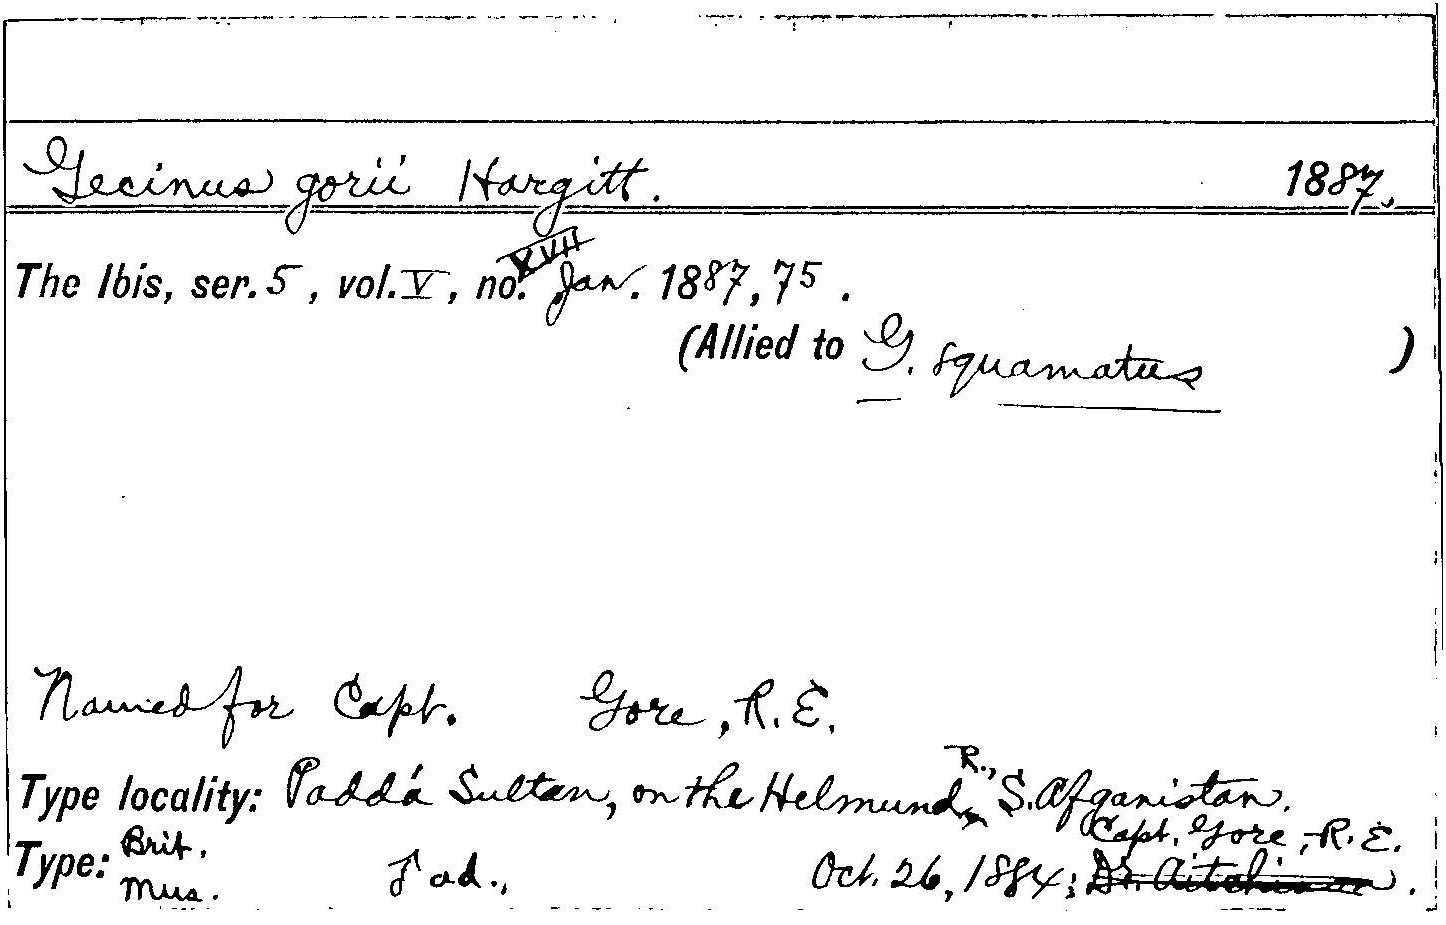 Gecinus gorii Hargitt. 1887.
The Ibis, ser. 5, vol. V, no. XVII Jan. 1887, 75.
(Allied to G. squamatus)
Named for Capt. Gore, R. E.
Type locality: Paddá Sultan, on the Helmund R., S. Afganistan.
Capt. Gore, R. E.
Type: Brit. Mus. ad., Oct. 26, 1884; Dr. Aitchison.